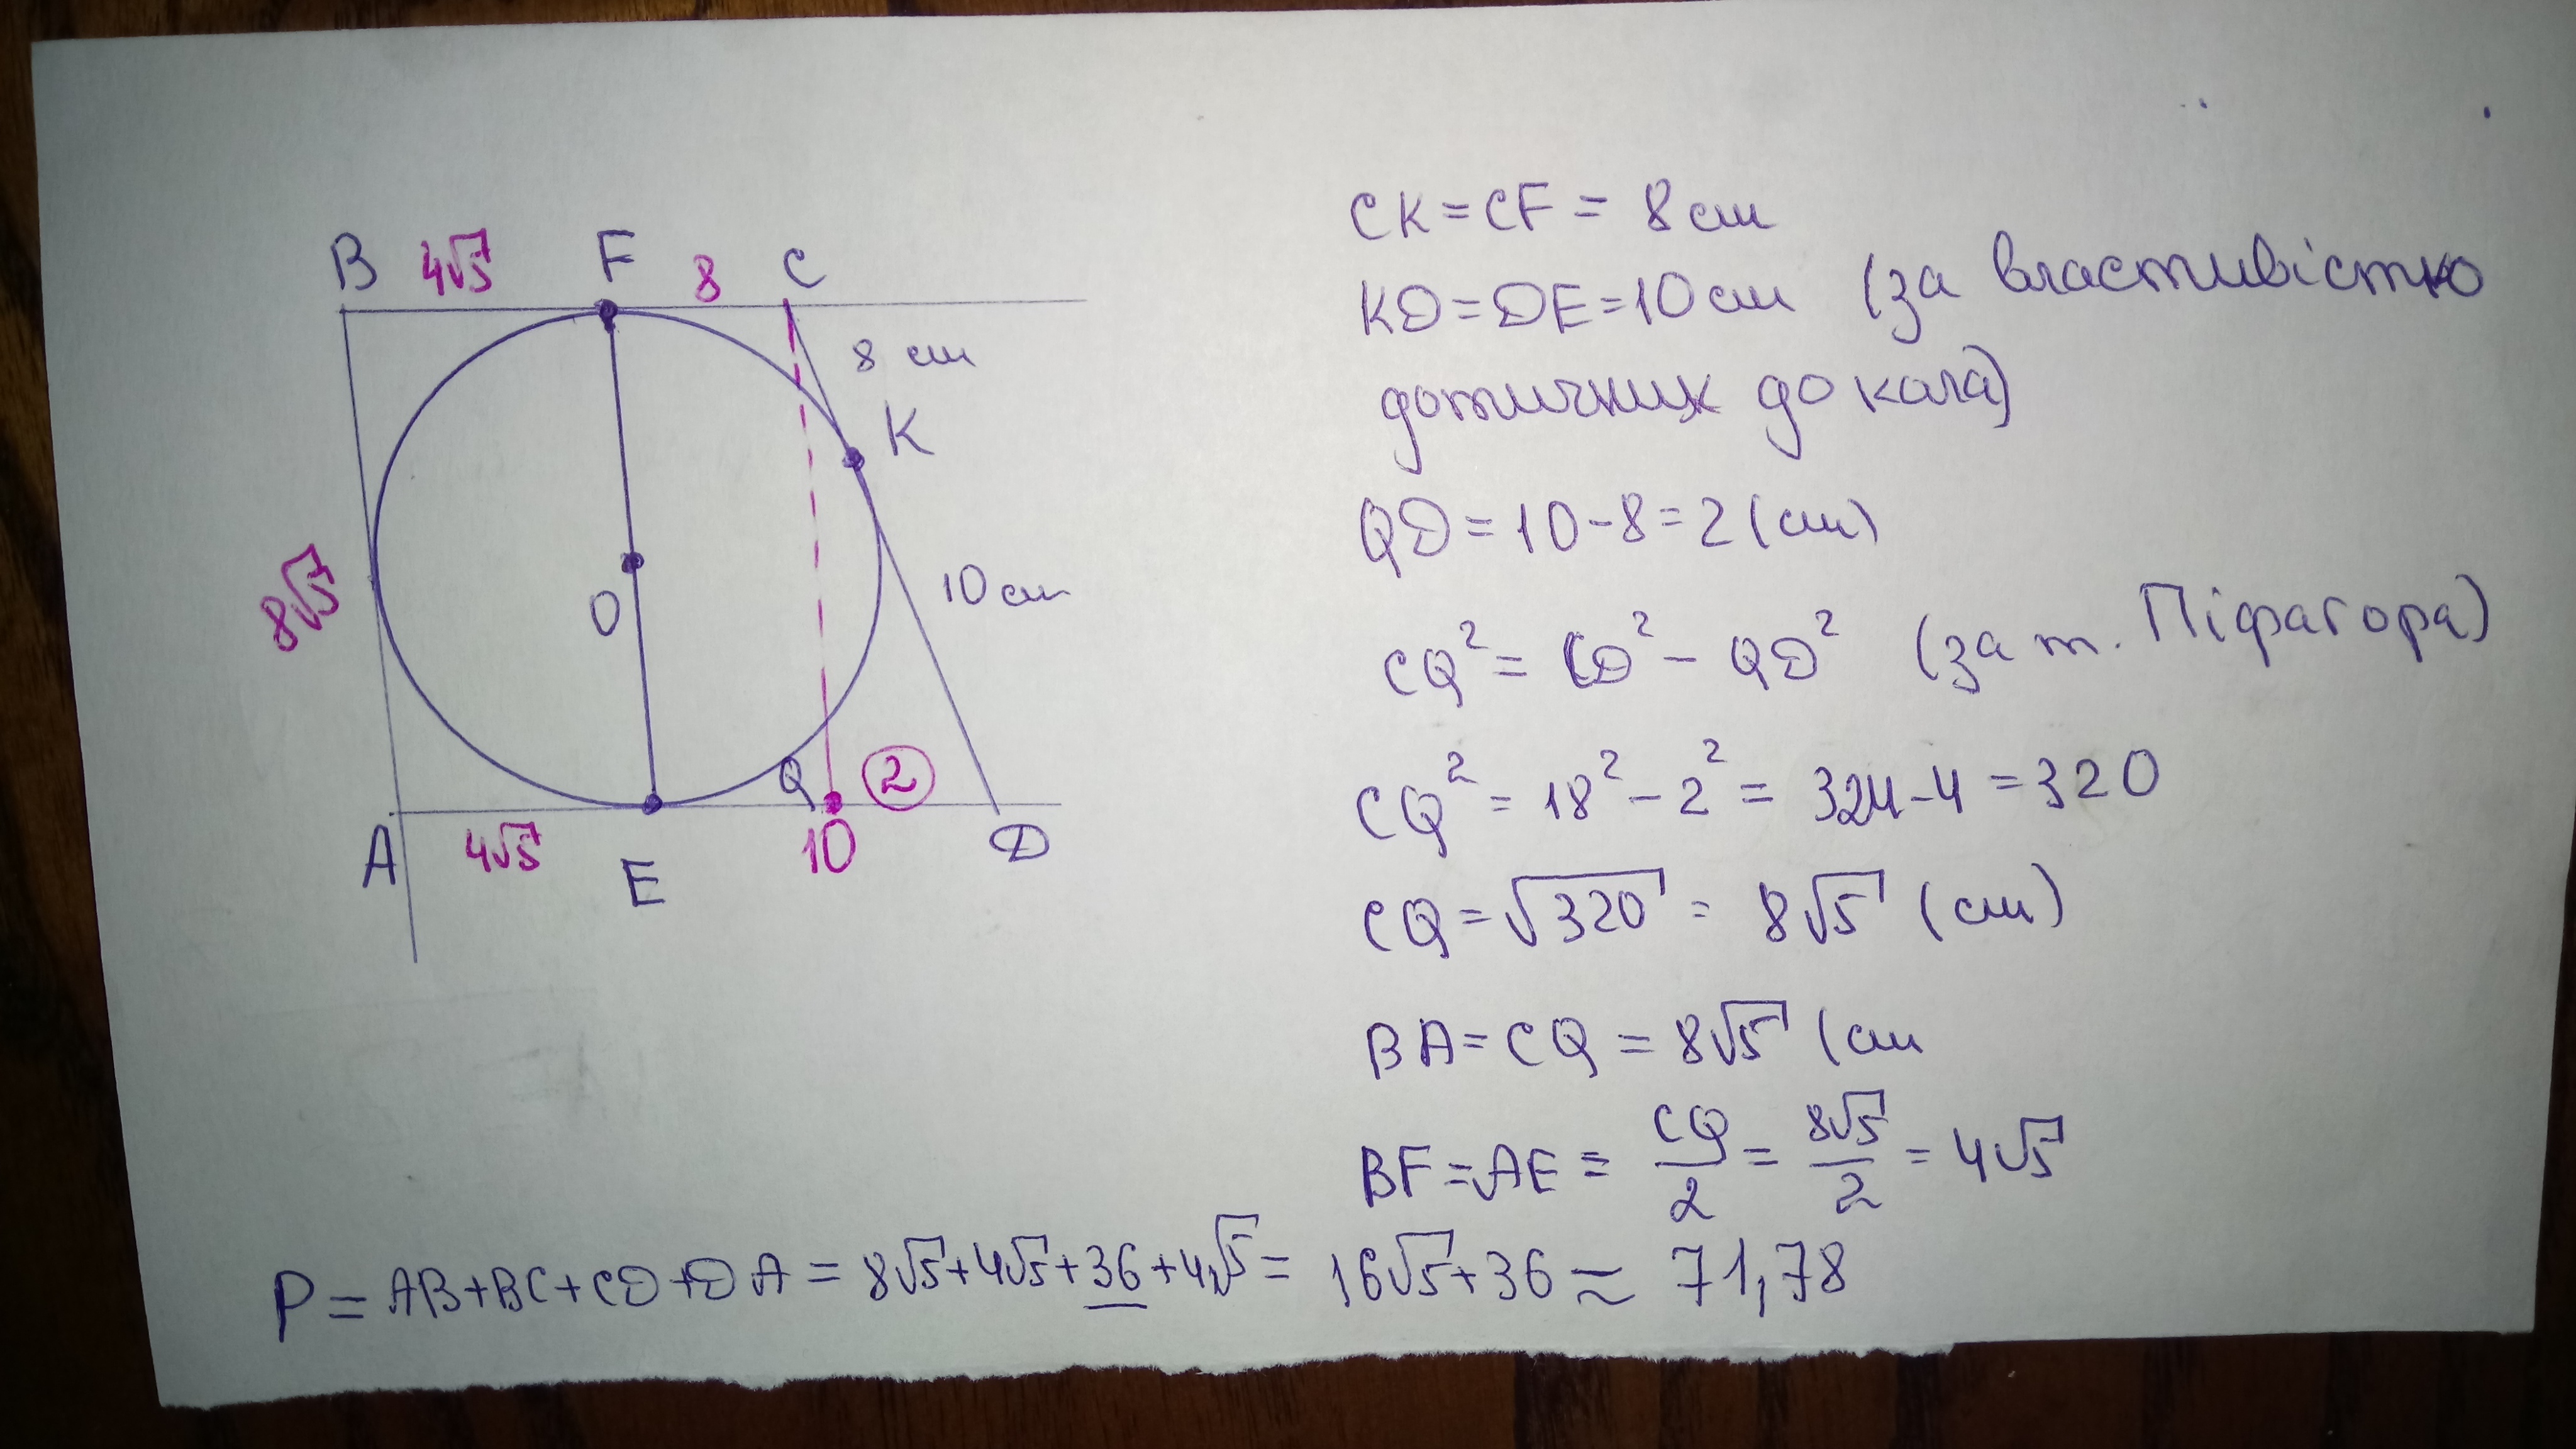 B 4√5 F 8 C
8 см
K
8√5
O
10 см
Q 2
A 4√5 E 10 D
CK = CF = 8 см
KD = DE = 10 см (за властивістю
дотичних до кола)
QD = 10 - 8 = 2 (см)
CQ² = CD² - QD² (за т. Піфагора)
CQ² = 18² - 2² = 324 - 4 = 320
CQ = √320 = 8√5 (см)
BA = CQ = 8√5 (см
BF = AE = CQ/2 = 8√5/2 = 4√5
P = AB + BC + CD + DA = 8√5 + 4√5 + 36 + 4√5 = 16√5 + 36 ≈ 71,78